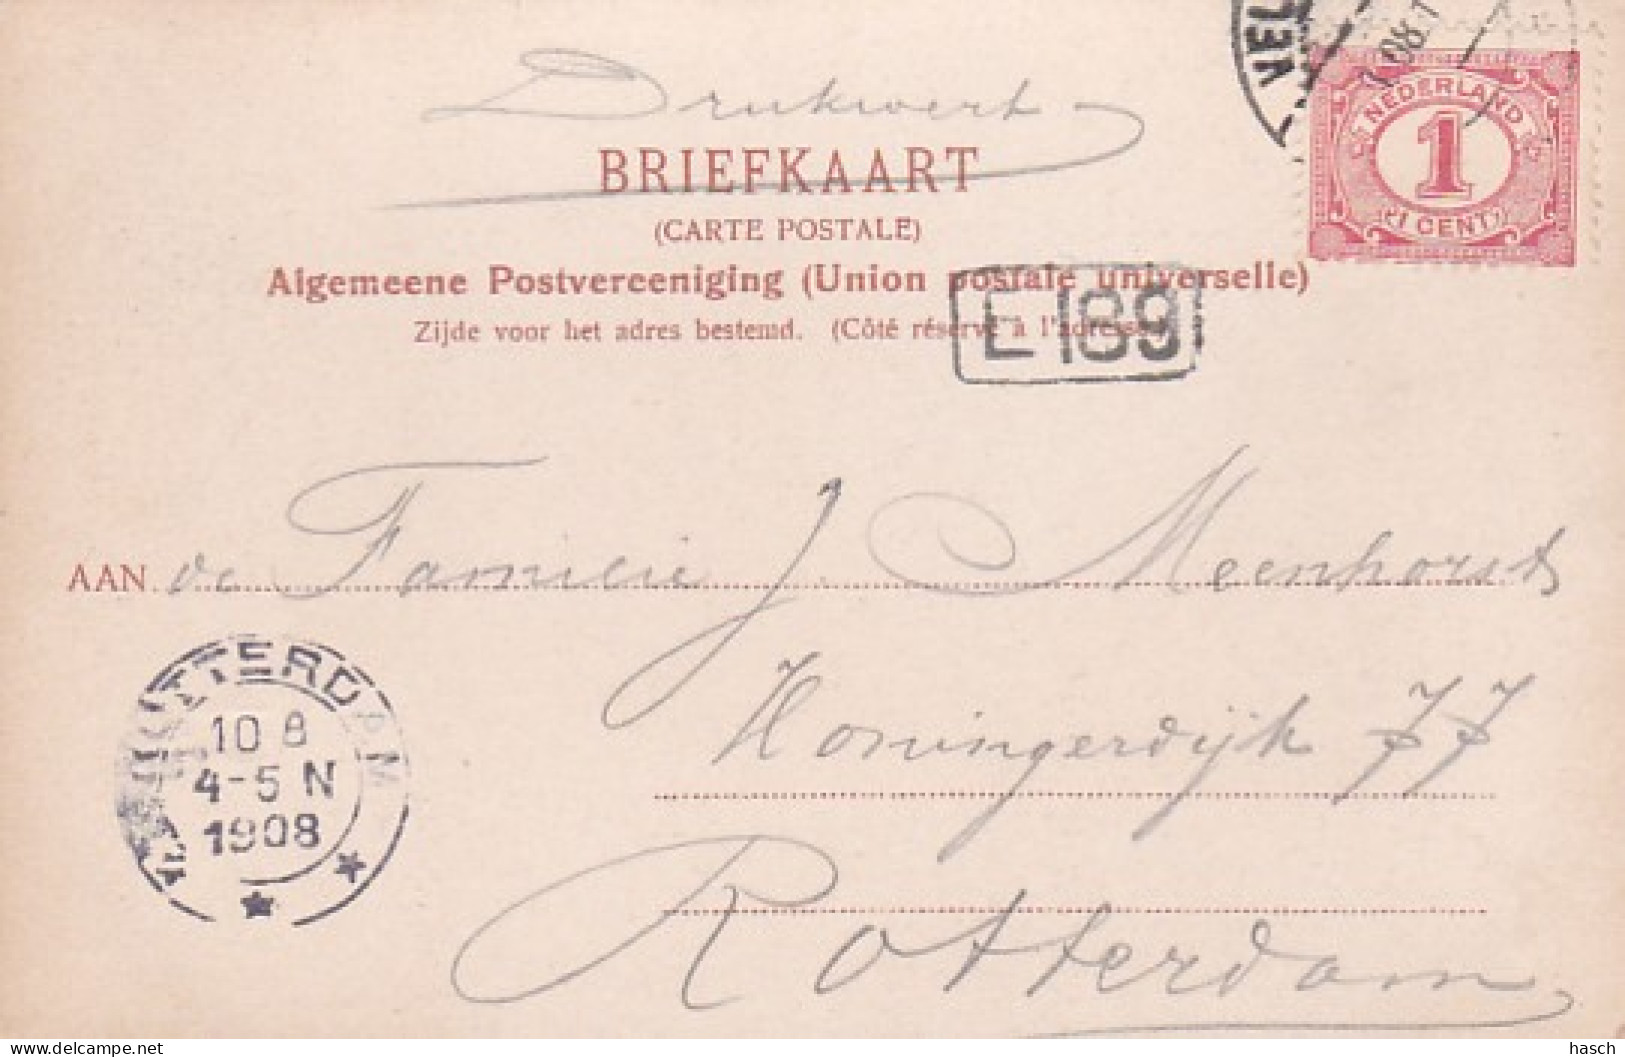 Drukwerk
BRIEFKAART
(CARTE POSTALE)
Algemeene Postvereeniging (Union postale universelle)
Zijde voor het adres bestemd. (Côté réservé à l'adresse)
VEL
08
NEDERLAND
1
1 CENT
E 89
AAN de Familie J. Meenhorst
Honingerdijk 77
Rotterdam
ROTTERDAM
10 8
4-5 N
1908
hasch
Delcampe.net